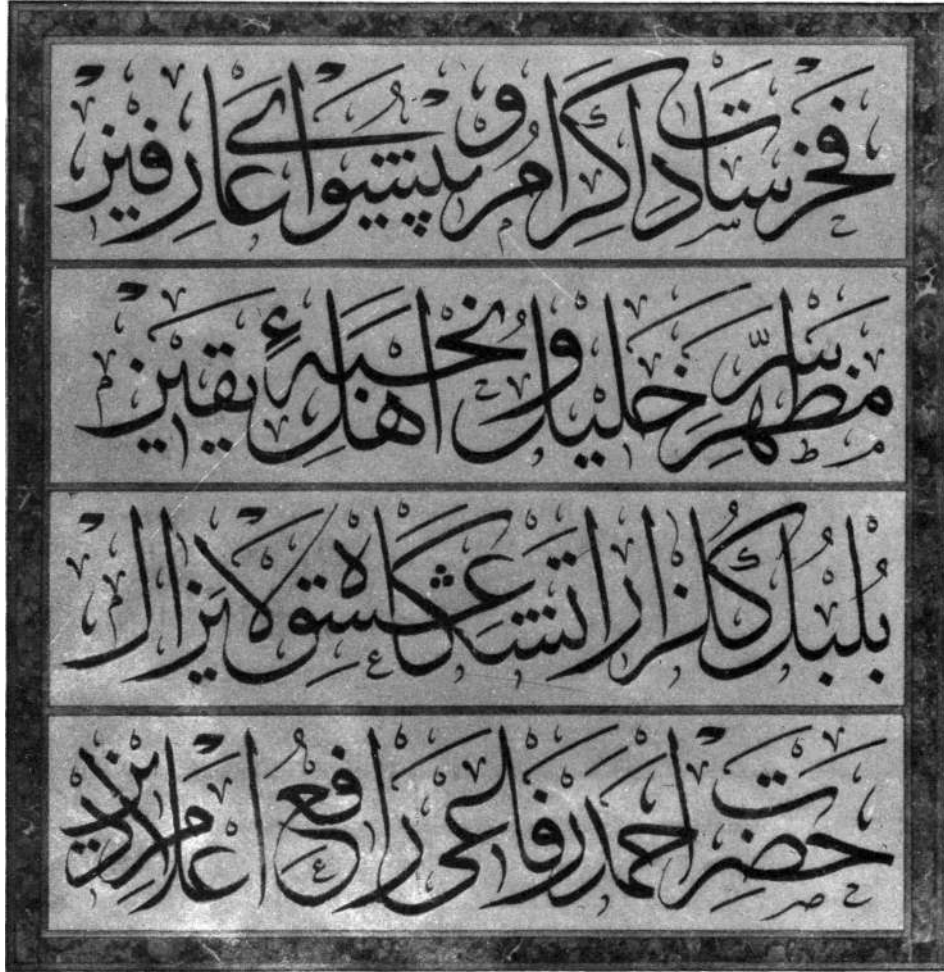 فخر سادات كرام و پیشوای عارفین
مظهر سرّ خلیل و نخبهٔ اهل یقین
بلبل كلزار اتشكاه عشق لا یزال
حضرت احمد رفاعی رافع اعلام دین